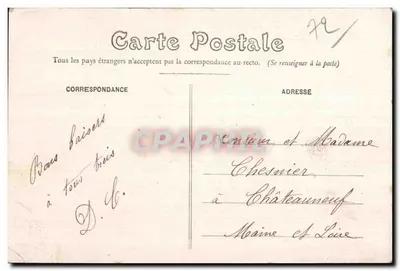 72
Carte Postale
Tous les pays étrangers n'acceptent pas la correspondance au recto. (Se renseigner à la poste)
CORRESPONDANCE
ADRESSE
Bons baisers
à tous trois
D. C.
Monsieur et Madame
Chesnier
à Châteauneuf
Maine et Loire
CPARAMA